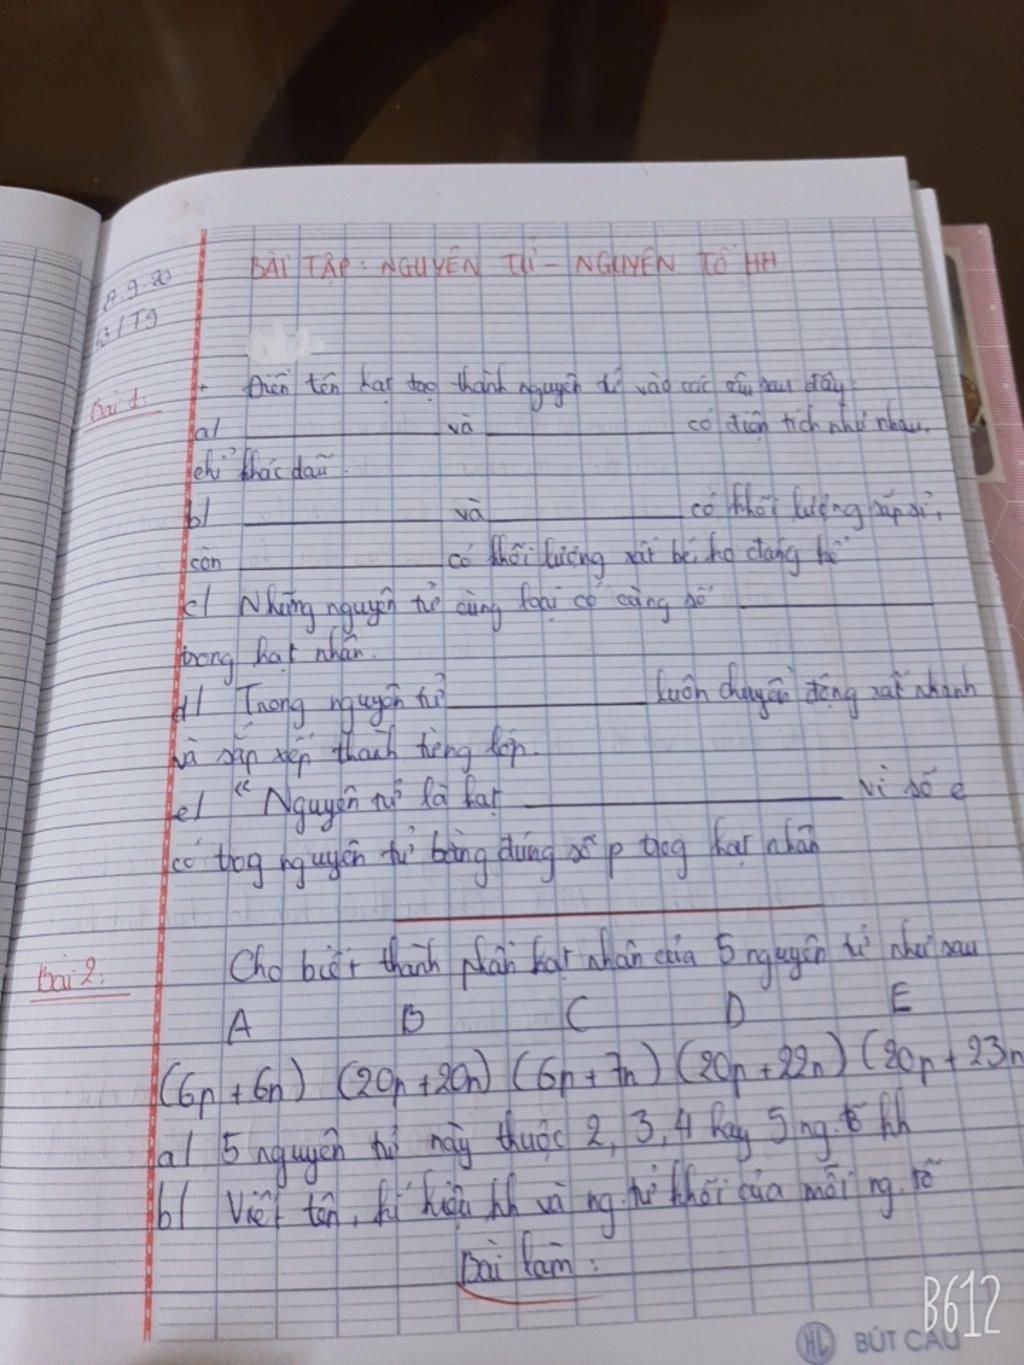 BÀI TẬP: NGUYÊN TỬ - NGUYÊN TỐ HH
9-20
3/T9
Bài 1:
+ Điền tên hạt tạo thành nguyên tử vào các câu sau đây:
a/ ____ và ____ có điện tích như nhau,
chỉ khác dấu.
b/ ____ và ____ có khối lượng xấp xỉ,
còn ____ có khối lượng rất bé, ko đáng kể
c/ Những nguyên tử cùng loại có cùng số ____
trong hạt nhân.
d/ Trong nguyên tử ____ luôn chuyển động rất nhanh
và sắp xếp thành từng lớp.
e/ "Nguyên tử là hạt ____ vì số e
có trog nguyên tử bằng đúng số p trog hạt nhân
Bài 2:
Cho biết thành phần hạt nhân của 5 nguyên tử như sau
A B C D E
(6p + 6n) (20p + 20n) (6p + 7n) (20p + 22n) (20p + 23n
a/ 5 nguyên tử này thuộc 2, 3, 4 hay 5 ng.tố hh
b/ Viết tên, kí hiệu hh và ng.tử khối của mỗi ng.tố
Bài làm:
HL BÚT CẦU
B612